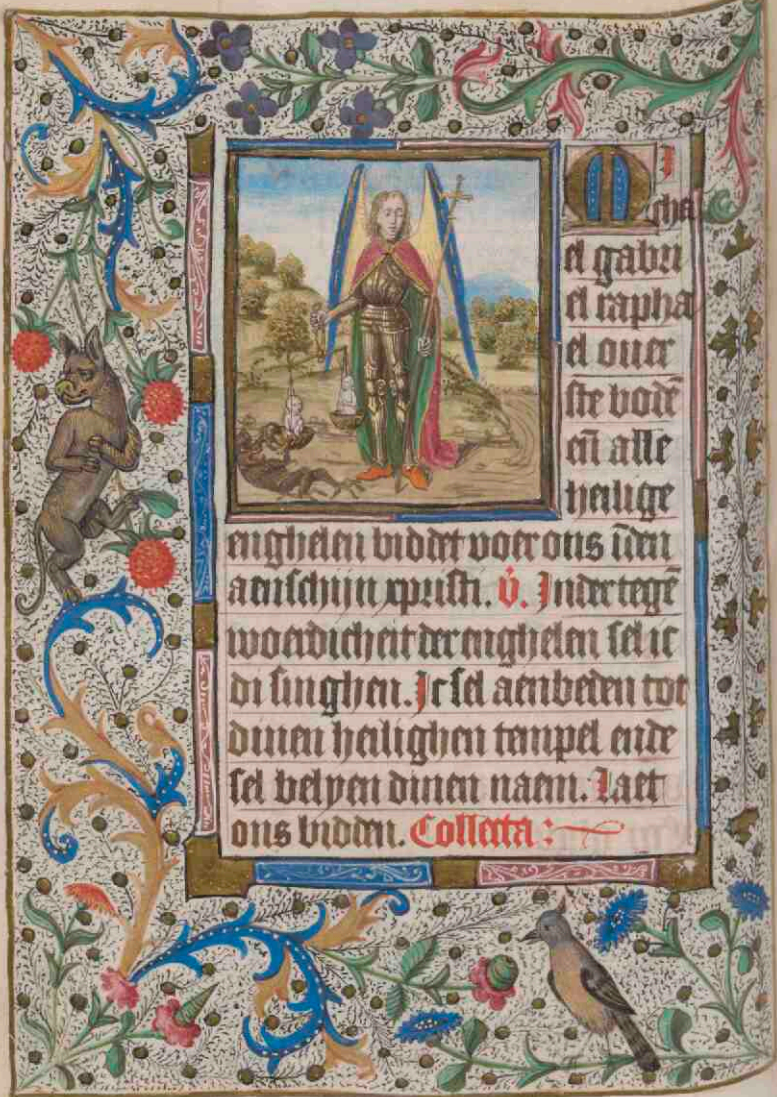 MI
cha
el gabri
el rapha
el ouer
ste bodē
eñ alle
heilige
enghelen biddet voer ons īden
aenschijn cpristi. V̄. In der tegē
woerdicheit der enghelen sel ic
di singhen. Ic sel aenbeden tot
dinen heilighen tempel ende
sel belyen dinen naem. Laet
ons bidden. Collecta: